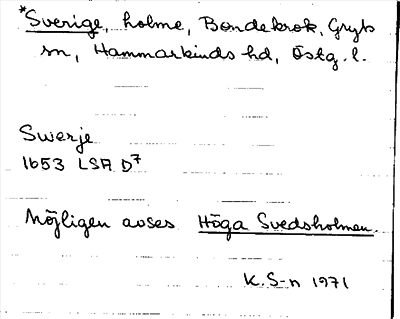 *Sverige, holme, Bondekrok, Gryts
sn, Hammarkinds hd, Östg. l.
Swerje
1653 LSA D7
Möjligen avses Höga Svedsholmen.
K. S-n 1971